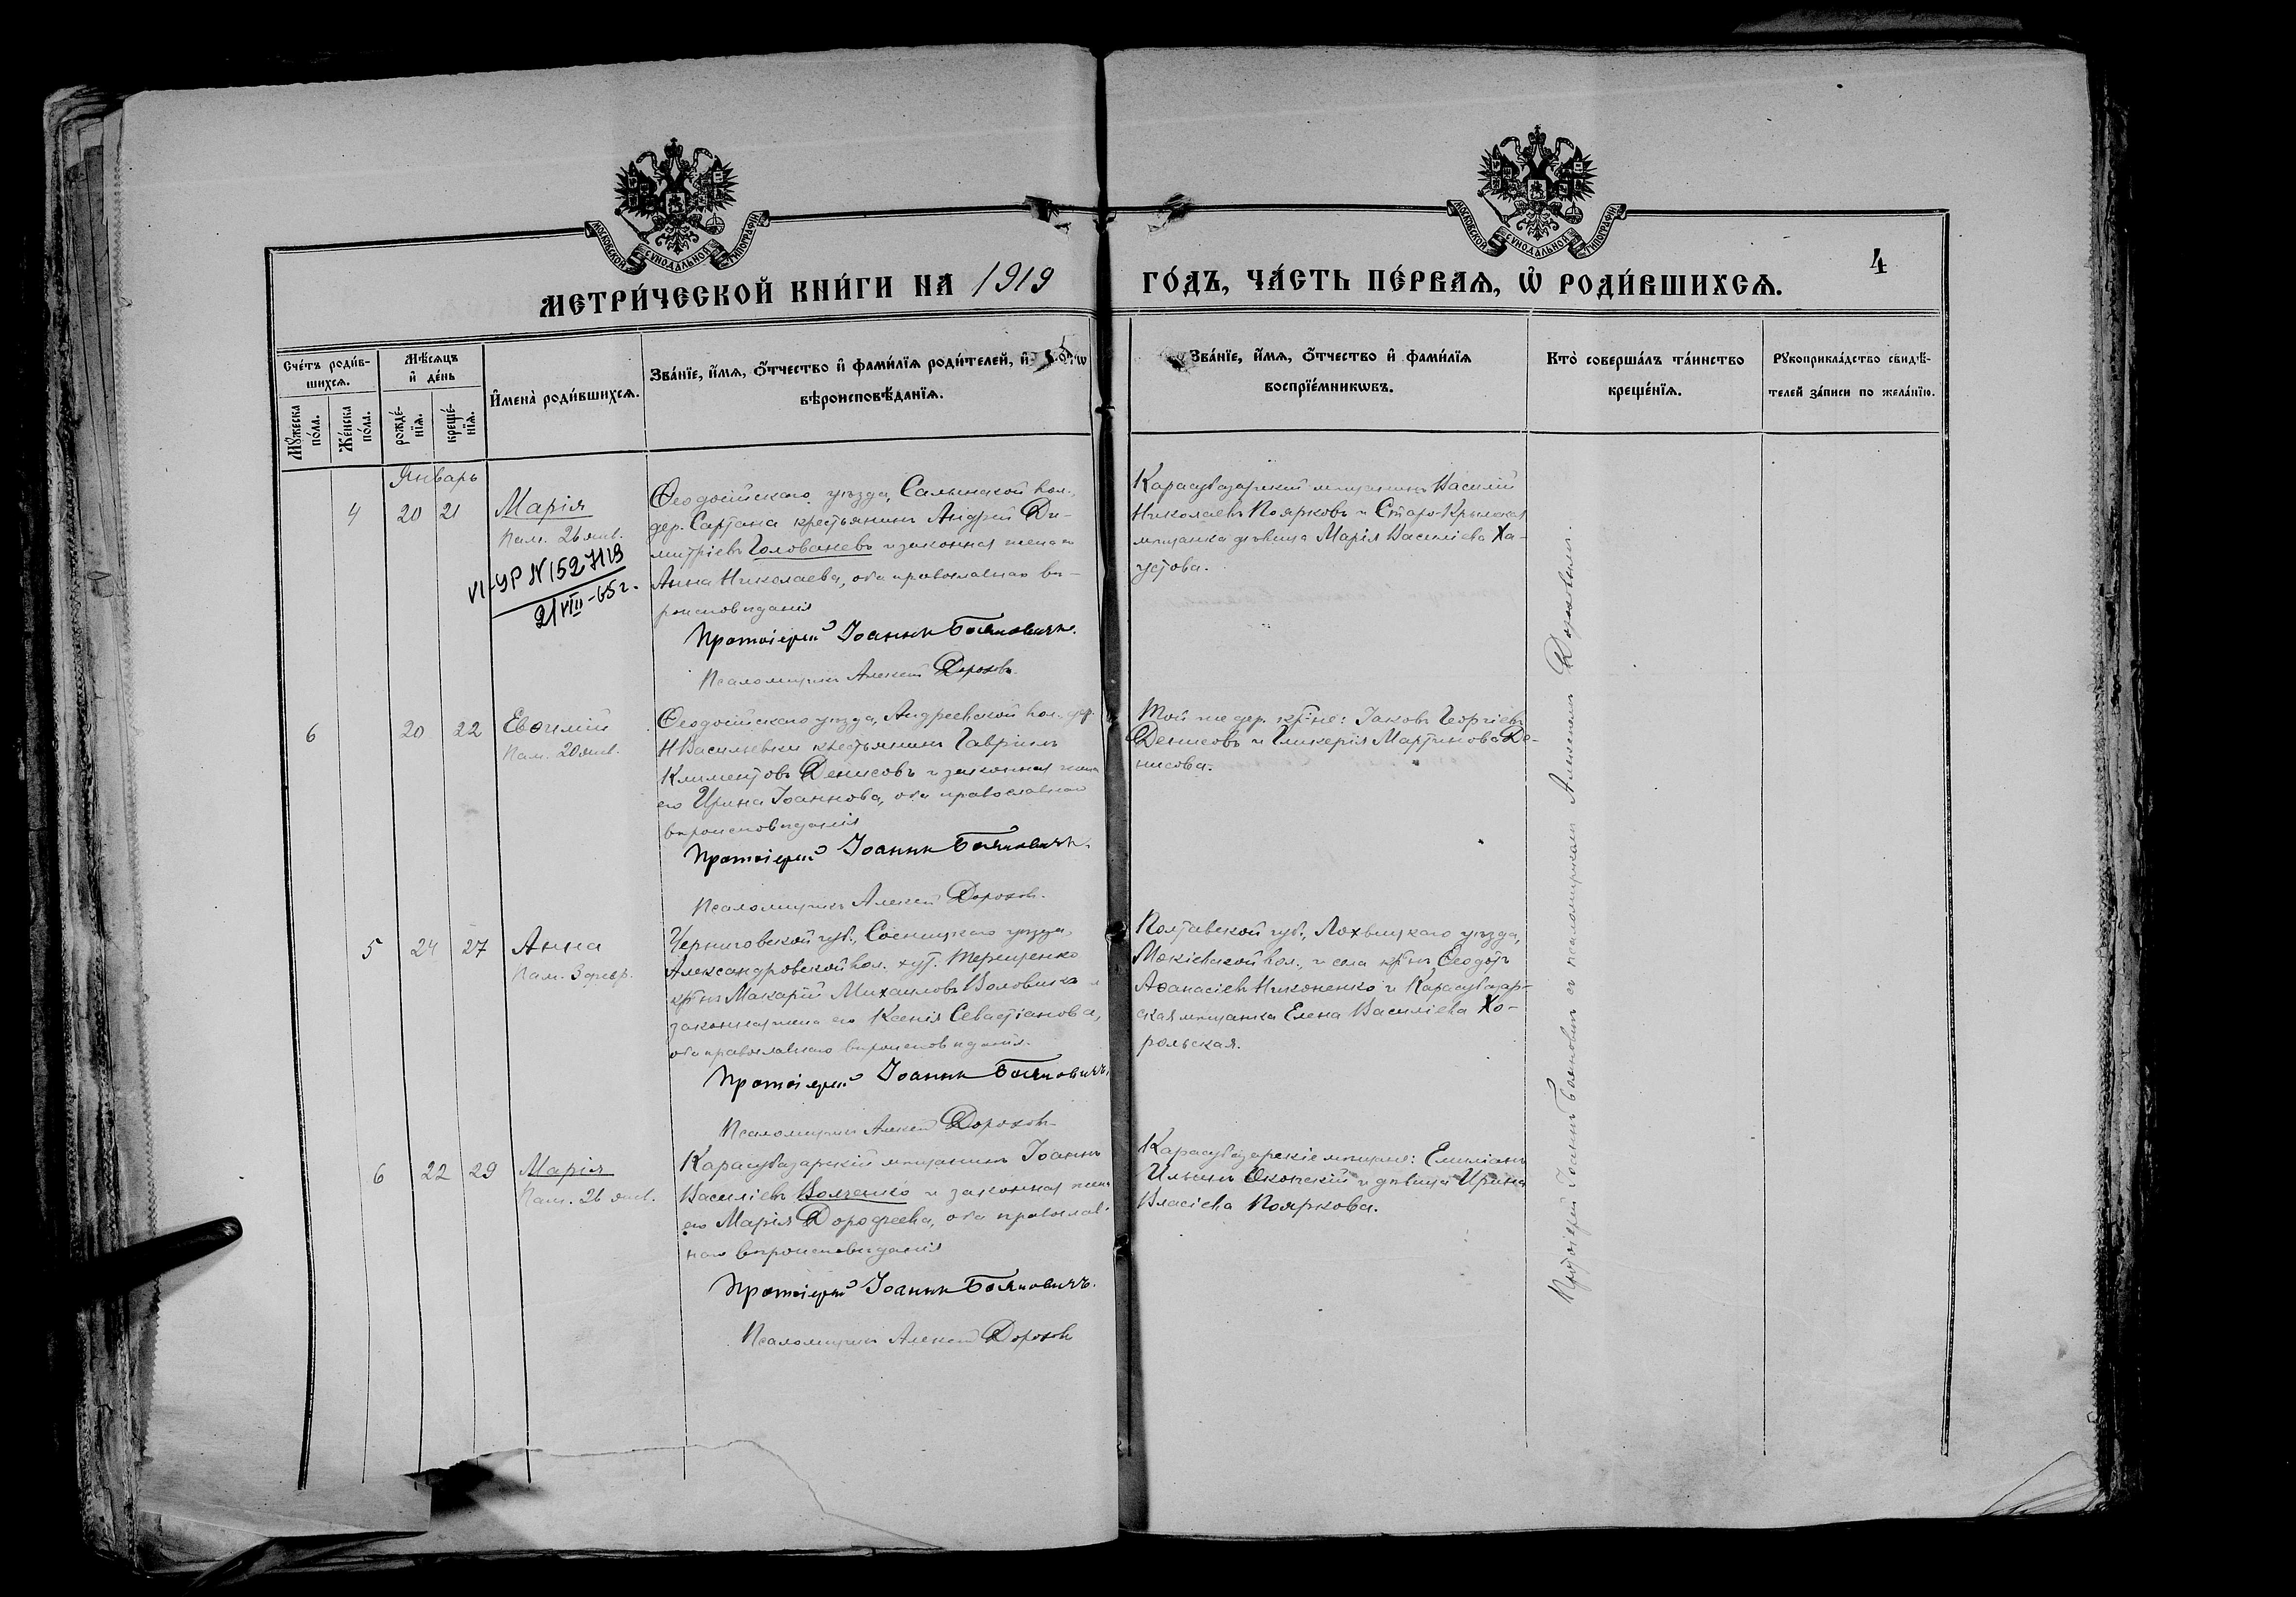 МОСКОВСКОЙ СѴНОДАЛЬНОЙ ТИПОГРАФІИ
МОСКОВСКОЙ СѴНОДАЛЬНОЙ ТИПОГРАФІИ
МЕТРИ́ЧЕСКОЙ КНИ́ГИ НА 1919
ГО́ДЪ, ЧА́СТЬ ПЕ́РВАѦ, Ѡ҆ РОДИ́ВШИХСѦ.
4
Сче́тъ роди́в-
шихсѧ.
Мꙋ́жеска по́ла.
Же́нска по́ла.
Мѣ́сѧцъ
и҆ де́нь
рожде́-
нїѧ.
креще́-
нїѧ.
И҆мена̀ роди́вшихсѧ.
Зва́нїе, и҆́мѧ, ѻ҆́тчество и҆ фами́лїѧ роди́телей, и҆
вѣроисповѣ́данїѧ.
Зва́нїе, и҆́мѧ, ѻ҆́тчество и҆ фами́лїѧ
воспрїе́мникѡвъ.
Кто̀ соверша́лъ та́инство
креще́нїѧ.
Рꙋкоприкла́дство свидѣ́-
телей за́писи по жела́нїю.
Январь
4 20 21 Марія
Пам. 26 янв.
VI-УР N 152 7119
21/VIII-65 г.
Ѳеодосійскаго уѣзда, Салынской вол.,
дер. Сартана крестьянинъ Андрей Ди-
митріевъ Голованевъ и законная жена его
Анна Николаева, оба православнаго вѣ-
роисповѣданія
Протоіерей Іоаннъ Баяновичъ.
Псаломщикъ Алексей Дороховъ.
Карасубазарскій мѣщанинъ Василій
Николаевъ Поярковъ и Старо-Крымская
мѣщанка дѣвица Марія Василіева Ха-
устова.
6 20 22 Евѳимій
Пам. 20 янв.
Ѳеодосійскаго уѣзда, Андреевской вол. дер.
Н Васильевки крестьянинъ Гавріилъ
Климентовъ Денисовъ и законная жена
его Ирина Іоаннова, оба православнаго
вѣроисповѣданія
Протоіерей Іоаннъ Баяновичъ.
Псаломщикъ Алексей Дороховъ.
Той же дер. кр-не: Іаковъ Георгіевъ
Денисовъ и Гликерія Мартинова Де-
нисова.
5 24 27 Анна
Пам. 3 февр.
Черниговской губ., Сосницкаго уѣзда,
Александровской вол. хут. Терещенко
кр-нъ Макарій Михаиловъ Воловикъ и
законная жена его Ксенія Севастіанова,
оба православнаго вѣроисповѣданія.
Протоіерей Іоаннъ Баяновичъ.
Псаломщикъ Алексей Дороховъ
Полтавской губ., Лохвицкаго уѣзда,
Мокіевской вол., и села кр-нъ Ѳеодотъ
Аѳанасіевъ Никоненко и Карасубазар-
ская мѣщанка Елена Василіева Хо-
рольская.
6 22 29 Марія
Пам. 26 янв.
Карасубазарскій мѣщанинъ Іоаннъ
Василіевъ Волченко и законная жена
его Марія Дороѳеева, оба православ-
наго вѣроисповѣданія
Протоіерей Іоаннъ Баяновичъ.
Псаломщикъ Алексей Дороховъ
Карасубазарскіе мѣщане: Емиліанъ
Ильинъ Оконскій и дѣвица Ирина
Власіева Пояркова.
Протоіерей Іоаннъ Баяновичъ съ псаломщикомъ Алексеемъ Дороховымъ.